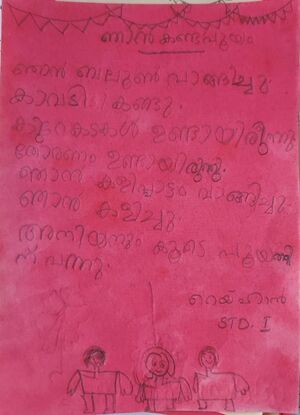 ഞാൻ കണ്ടപൂയം
ഞാൻ ബലൂൺ വാങ്ങിച്ചു.
കാവടി കണ്ടു.
കുറേകടകൾ ഉണ്ടായിരുന്നു
തോരണം ഉണ്ടായിരുന്നു.
ഞാൻ കളിപ്പാട്ടം വാങ്ങിച്ചു.
ഞാൻ കളിച്ചു.
അനിയനും കൂടെ പൂയത്തി
ന് വന്നു.
റെയ്ഹാൻ
STD. I